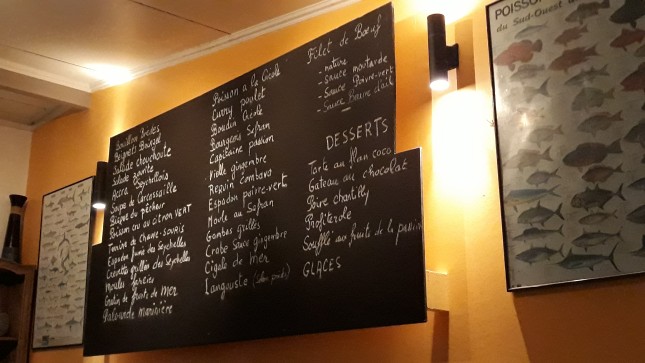 Bouillon Brèdes
Beignets Bourgot
Salade chouchoute
Salade Bourite
Accra Seychellois
Soupe de Carcassaille
Bisque du pêcheur
Poisson cru au citron VERT
Terrine de CHAUVE-SOURIS
Espadon fumé des Seychelles
Crevettes grillées des Seychelles
Moules farcies
Gratin de fruits de MER
Palourde marinière
Poisson a la Créole
Curry poulet
Boudin Créole
Bourgeois Safran
Capitaine passion
Vielle gingembre
Requin combava
Espadon poivre-vert
Moule au Safran
Gambas grillés
Crabe Sauce gingembre
Cigale de MER
Langouste (selon poids)
Filet de Bœuf
- nature
- sauce moutarde
- Sauce Poivre-vert
- Sauce Beurre d'ail
DESSERTS
Tarte au flan coco
Gateau au chocolat
Poire chantilly
Profiterole
Soufflé aux fruits de la passion
GLACES
POISSONS
du Sud-Ouest de